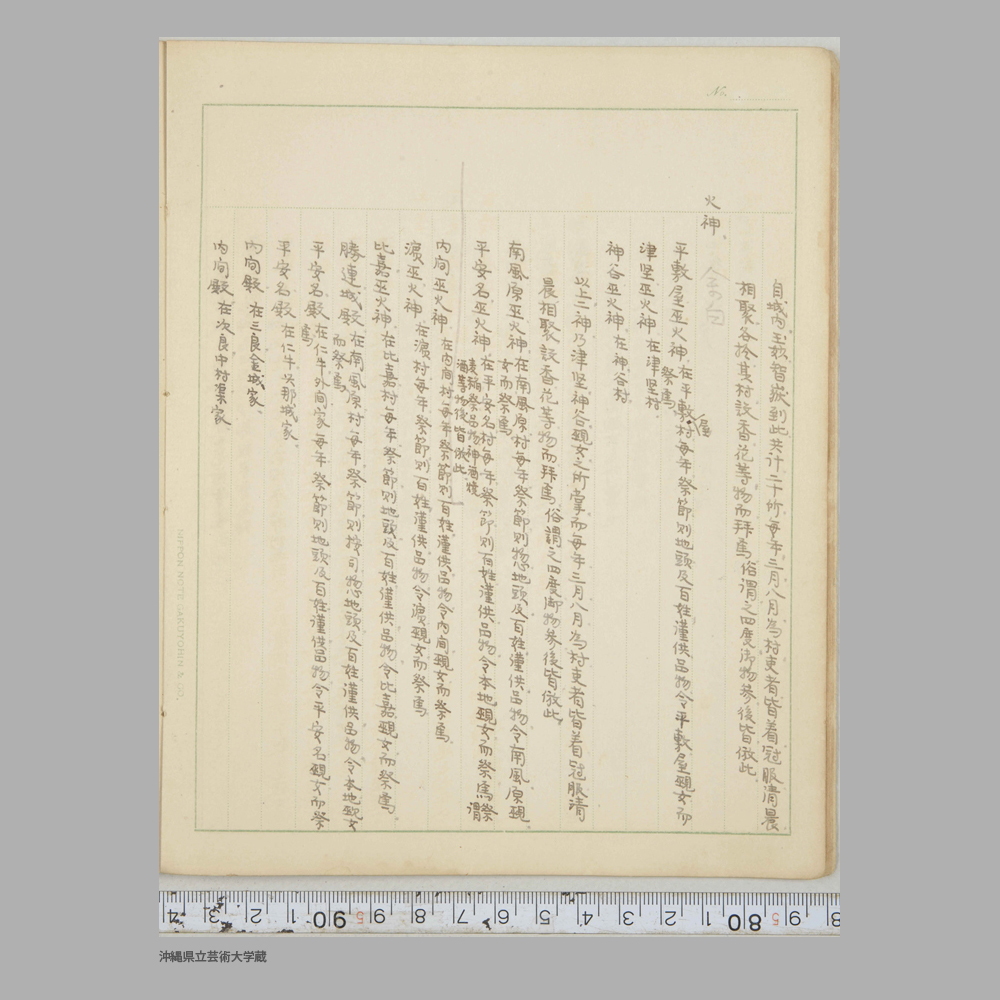 No.
自城内玉奴智嶽到此共計二十所毎年三月八月為村吏者皆着冠服清晨
相聚各捨其村設香花等物而拝焉俗謂之四度御物参後皆倣此
火神、
平敷屋巫火神 在平敷屋村毎年祭節則地頭及百姓謹供品物令平敷屋覡女而
祭焉
津堅巫火神 在津堅村
神谷巫火神 在神谷村
以上三神乃津堅神谷覡女之所掌而毎年三月八月為村吏者皆着冠服清
晨相聚設香花等物而拝焉俗謂之四度御物参後皆倣此
南風原巫火神 在南風原村毎年祭節則惣地頭及百姓謹供品物令南風原覡
女而祭焉
平安名巫火神 在平安名村毎年祭節則百姓謹供品物令本地覡女而祭焉祭謂
麦稲祭品物神酒焼
酒等物後皆倣此
内間巫火神 在内間村毎年祭節則百姓謹供品物令内間覡女而祭焉
濱巫火神 在濱村毎年祭節則百姓謹供品物令濱覡女而祭焉
比嘉巫火神 在比嘉村毎年祭節則地頭及百姓謹供品物令比嘉覡女而祭焉
勝連城殿 在南風原村毎年祭節則按司惣地頭及百姓謹供品物令本地覡女
而祭焉
平安名殿 在仁牛外間家毎年祭節則地頭及百姓謹供品物令平安名覡女而祭
焉
平安名殿 在仁牛头那城家
内間殿 在三良金城家、
内間殿 在次良中村渠家
NIPPON NOTE GAKUYOHIN & CO.
4 3 2 1 90 5 9 8 7 6 5 4 3 2 1 80 5 9 8
沖縄県立芸術大学蔵